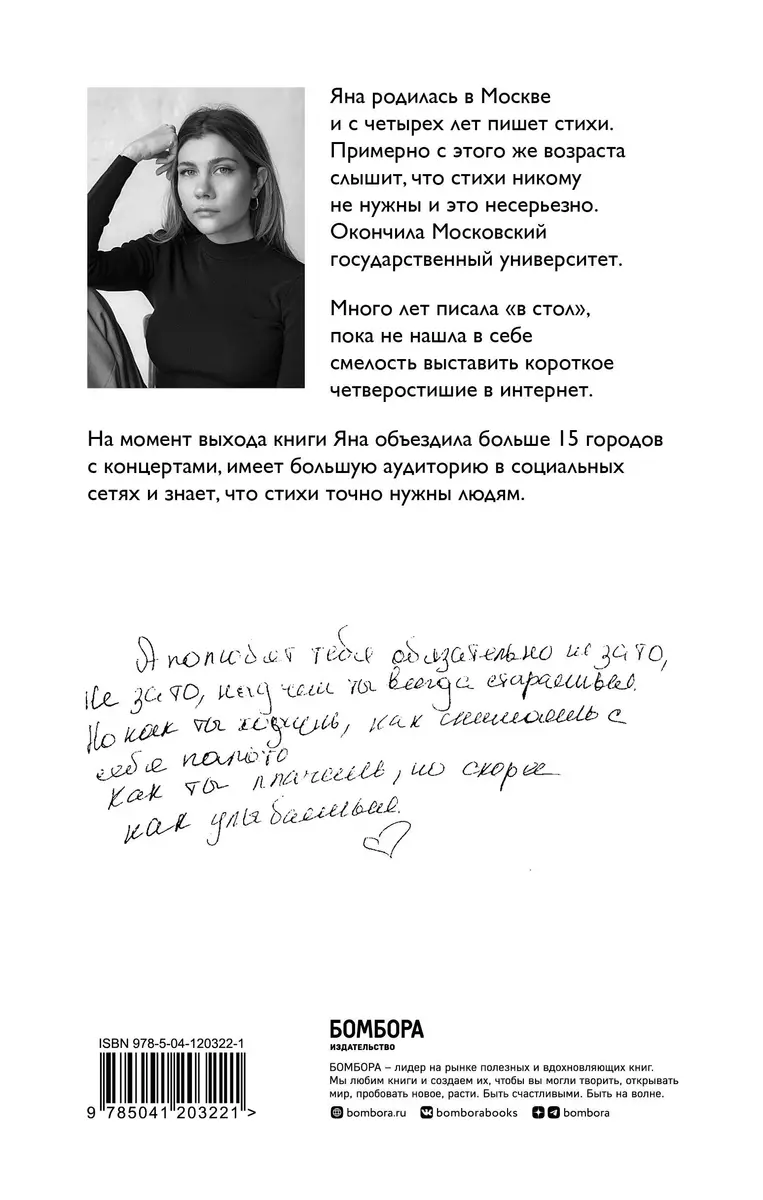 Яна родилась в Москве
и с четырех лет пишет стихи.
Примерно с этого же возраста
слышит, что стихи никому
не нужны и это несерьезно.
Окончила Московский
государственный университет.
Много лет писала «в стол»,
пока не нашла в себе
смелость выставить короткое
четверостишие в интернет.
На момент выхода книги Яна объездила больше 15 городов
с концертами, имеет большую аудиторию в социальных
сетях и знает, что стихи точно нужны людям.
А полюбят тебя обязательно не за то,
Не за то, над чем ты всегда стараешься.
Но как ты ходишь, как снимаешь с
себя пальто
Как ты плачешь, но скорее
как улыбаешься.
ISBN 978-5-04-120322-1
9 785041 203221 >
БОМБОРА
ИЗДАТЕЛЬСТВО
БОМБОРА – лидер на рынке полезных и вдохновляющих книг.
Мы любим книги и создаем их, чтобы вы могли творить, открывать
мир, пробовать новое, расти. Быть счастливыми. Быть на волне.
bombora.ru bomborabooks bombora